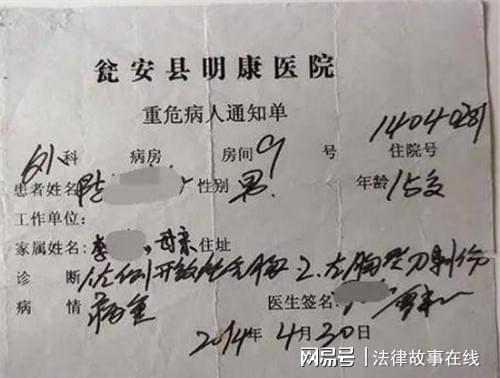 瓮安县明康医院
重危病人通知单
外科 病房 房间 9 号 1404281 住院号
患者姓名 陆 性别 男 年龄 15岁
工作单位:
家属姓名: 李 母亲 住址
诊断 1.左侧开放性气胸 2.左胸背刀刺伤
病情 病重 医生签名:
2014年4月30日
网易号 法律故事在线